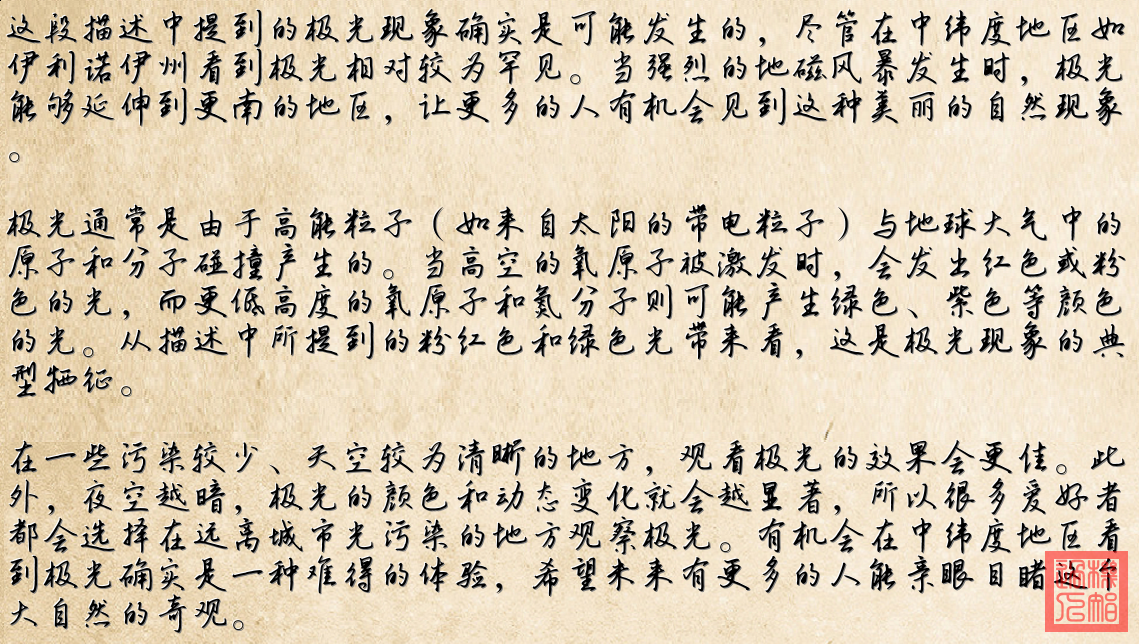 这段描述中提到的极光现象确实是可能发生的，尽管在中纬度地区如
伊利诺伊州看到极光相对较为罕见。当强烈的地磁风暴发生时，极光
能够延伸到更南的地区，让更多的人有机会见到这种美丽的自然现象
。
极光通常是由于高能粒子（如来自太阳的带电粒子）与地球大气中的
原子和分子碰撞产生的。当高空的氧原子被激发时，会发出红色或粉
色的光，而更低高度的氧原子和氮分子则可能产生绿色、紫色等颜色
的光。从描述中所提到的粉红色和绿色光带来看，这是极光现象的典
型牺征。
在一些污染较少、天空较为清晰的地方，观看极光的效果会更佳。此
外，夜空越暗，极光的颜色和动态变化就会越显著，所以很多爱好者
都会选择在远离城市光污染的地方观察极光。有机会在中纬度地区看
到极光确实是一种难得的体验，希望未来有更多的人能亲眼目睹这个
大自然的奇观。